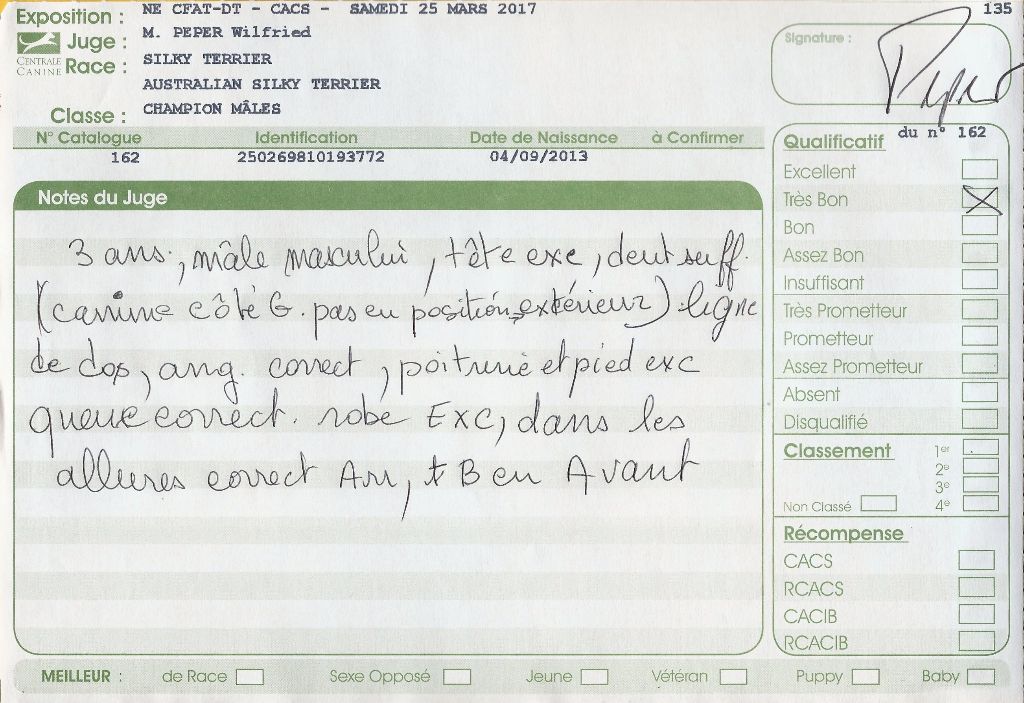 Exposition : NE CFAT-DT - CACS - SAMEDI 25 MARS 2017
135
Juge : M. PEPER Wilfried
CENTRALE CANINE
Race : SILKY TERRIER
AUSTRALIAN SILKY TERRIER
Classe : CHAMPION MÂLES
Signature :
Peper
N° Catalogue Identification Date de Naissance à Confirmer
162 250269810193772 04/09/2013
Notes du Juge
3 ans, mâle masculin, tête exc, dent suff.
(canine côté G. pas en position extérieur) ligne
de dos, ang. correct, poitrine et pied exc
queue correct. robe Exc, dans les
allures correct Arr, t B en Avant
Qualificatif du n° 162
Excellent
Très Bon X
Bon
Assez Bon
Insuffisant
Très Prometteur
Prometteur
Assez Prometteur
Absent
Disqualifié
Classement 1er
2e
3e
Non Classé 4e
Récompense
CACS
RCACS
CACIB
RCACIB
MEILLEUR : de Race Sexe Opposé Jeune Vétéran Puppy Baby